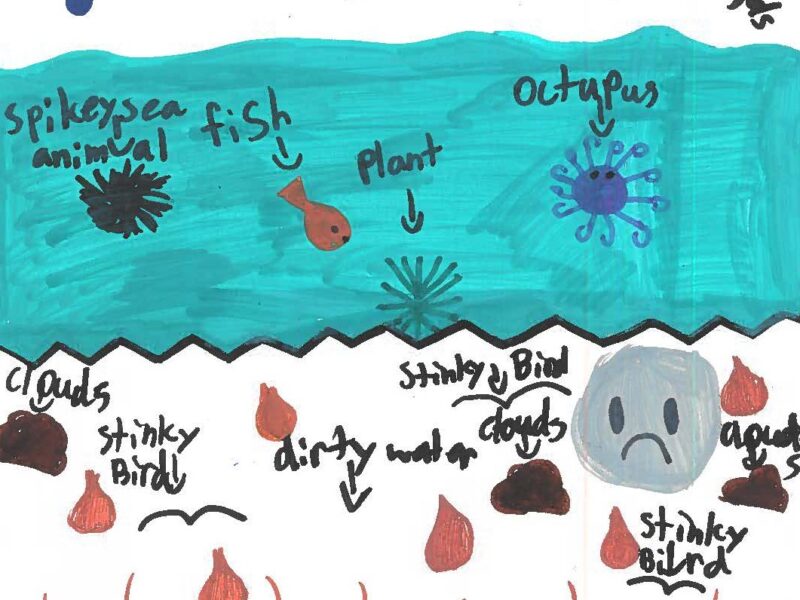 spikey sea
animal
fish
plant
octupus
clouds
stinky
Bird
dirty water
stinky Bird
clouds
stinky
Bilrd